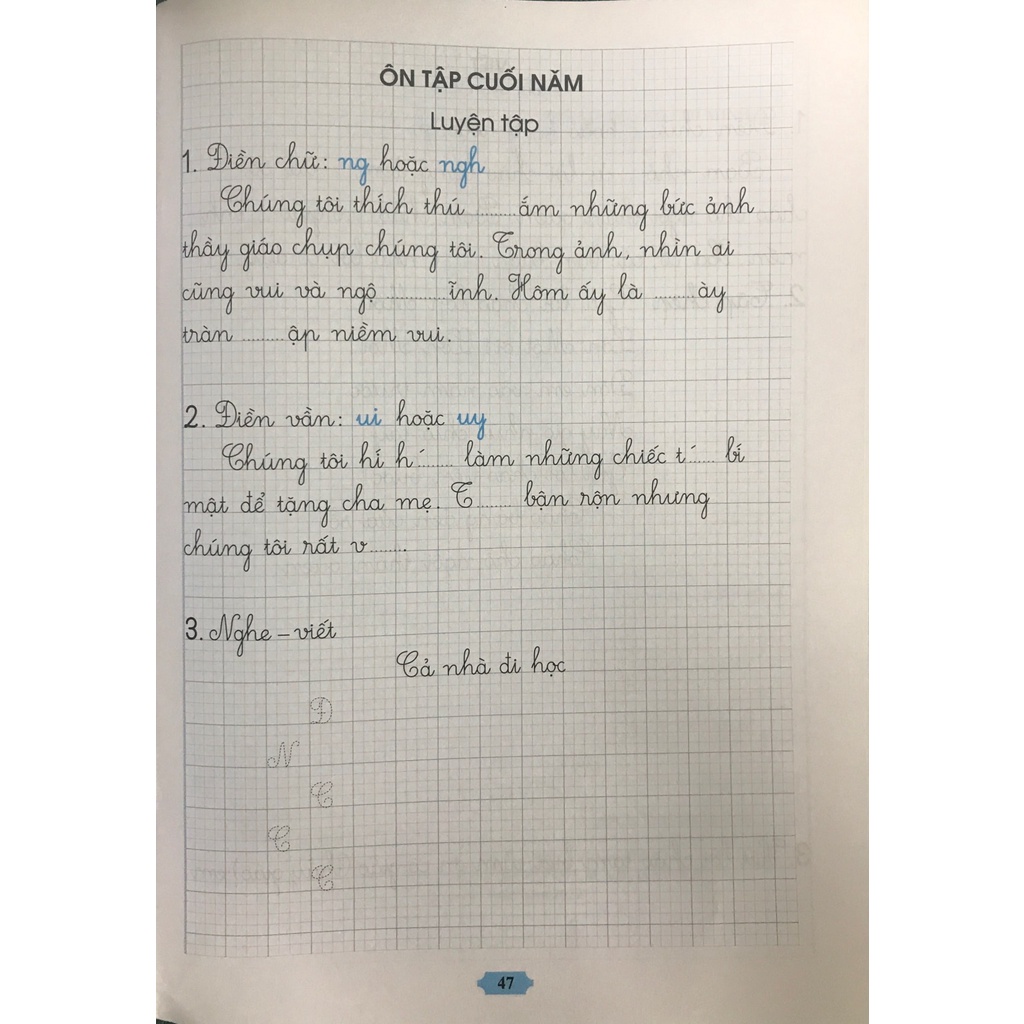 ÔN TẬP CUỐI NĂM
Luyện tập
1. Điền chữ: ng hoặc ngh
Chúng tôi thích thú ........ ắm những bức ảnh
thầy giáo chụp chúng tôi. Trong ảnh, nhìn ai
cũng vui và ngộ ............ ĩnh. Hôm ấy là ........ ày
tràn ......... ập niềm vui.
2. Điền vần: ui hoặc uy
Chúng tôi hí h´....... làm những chiếc t´...... bí
mật để tặng cha mẹ. T....... bận rộn nhưng
chúng tôi rất v........
3. Nghe – viết
Cả nhà đi học
Đ
N
C
C
C
47